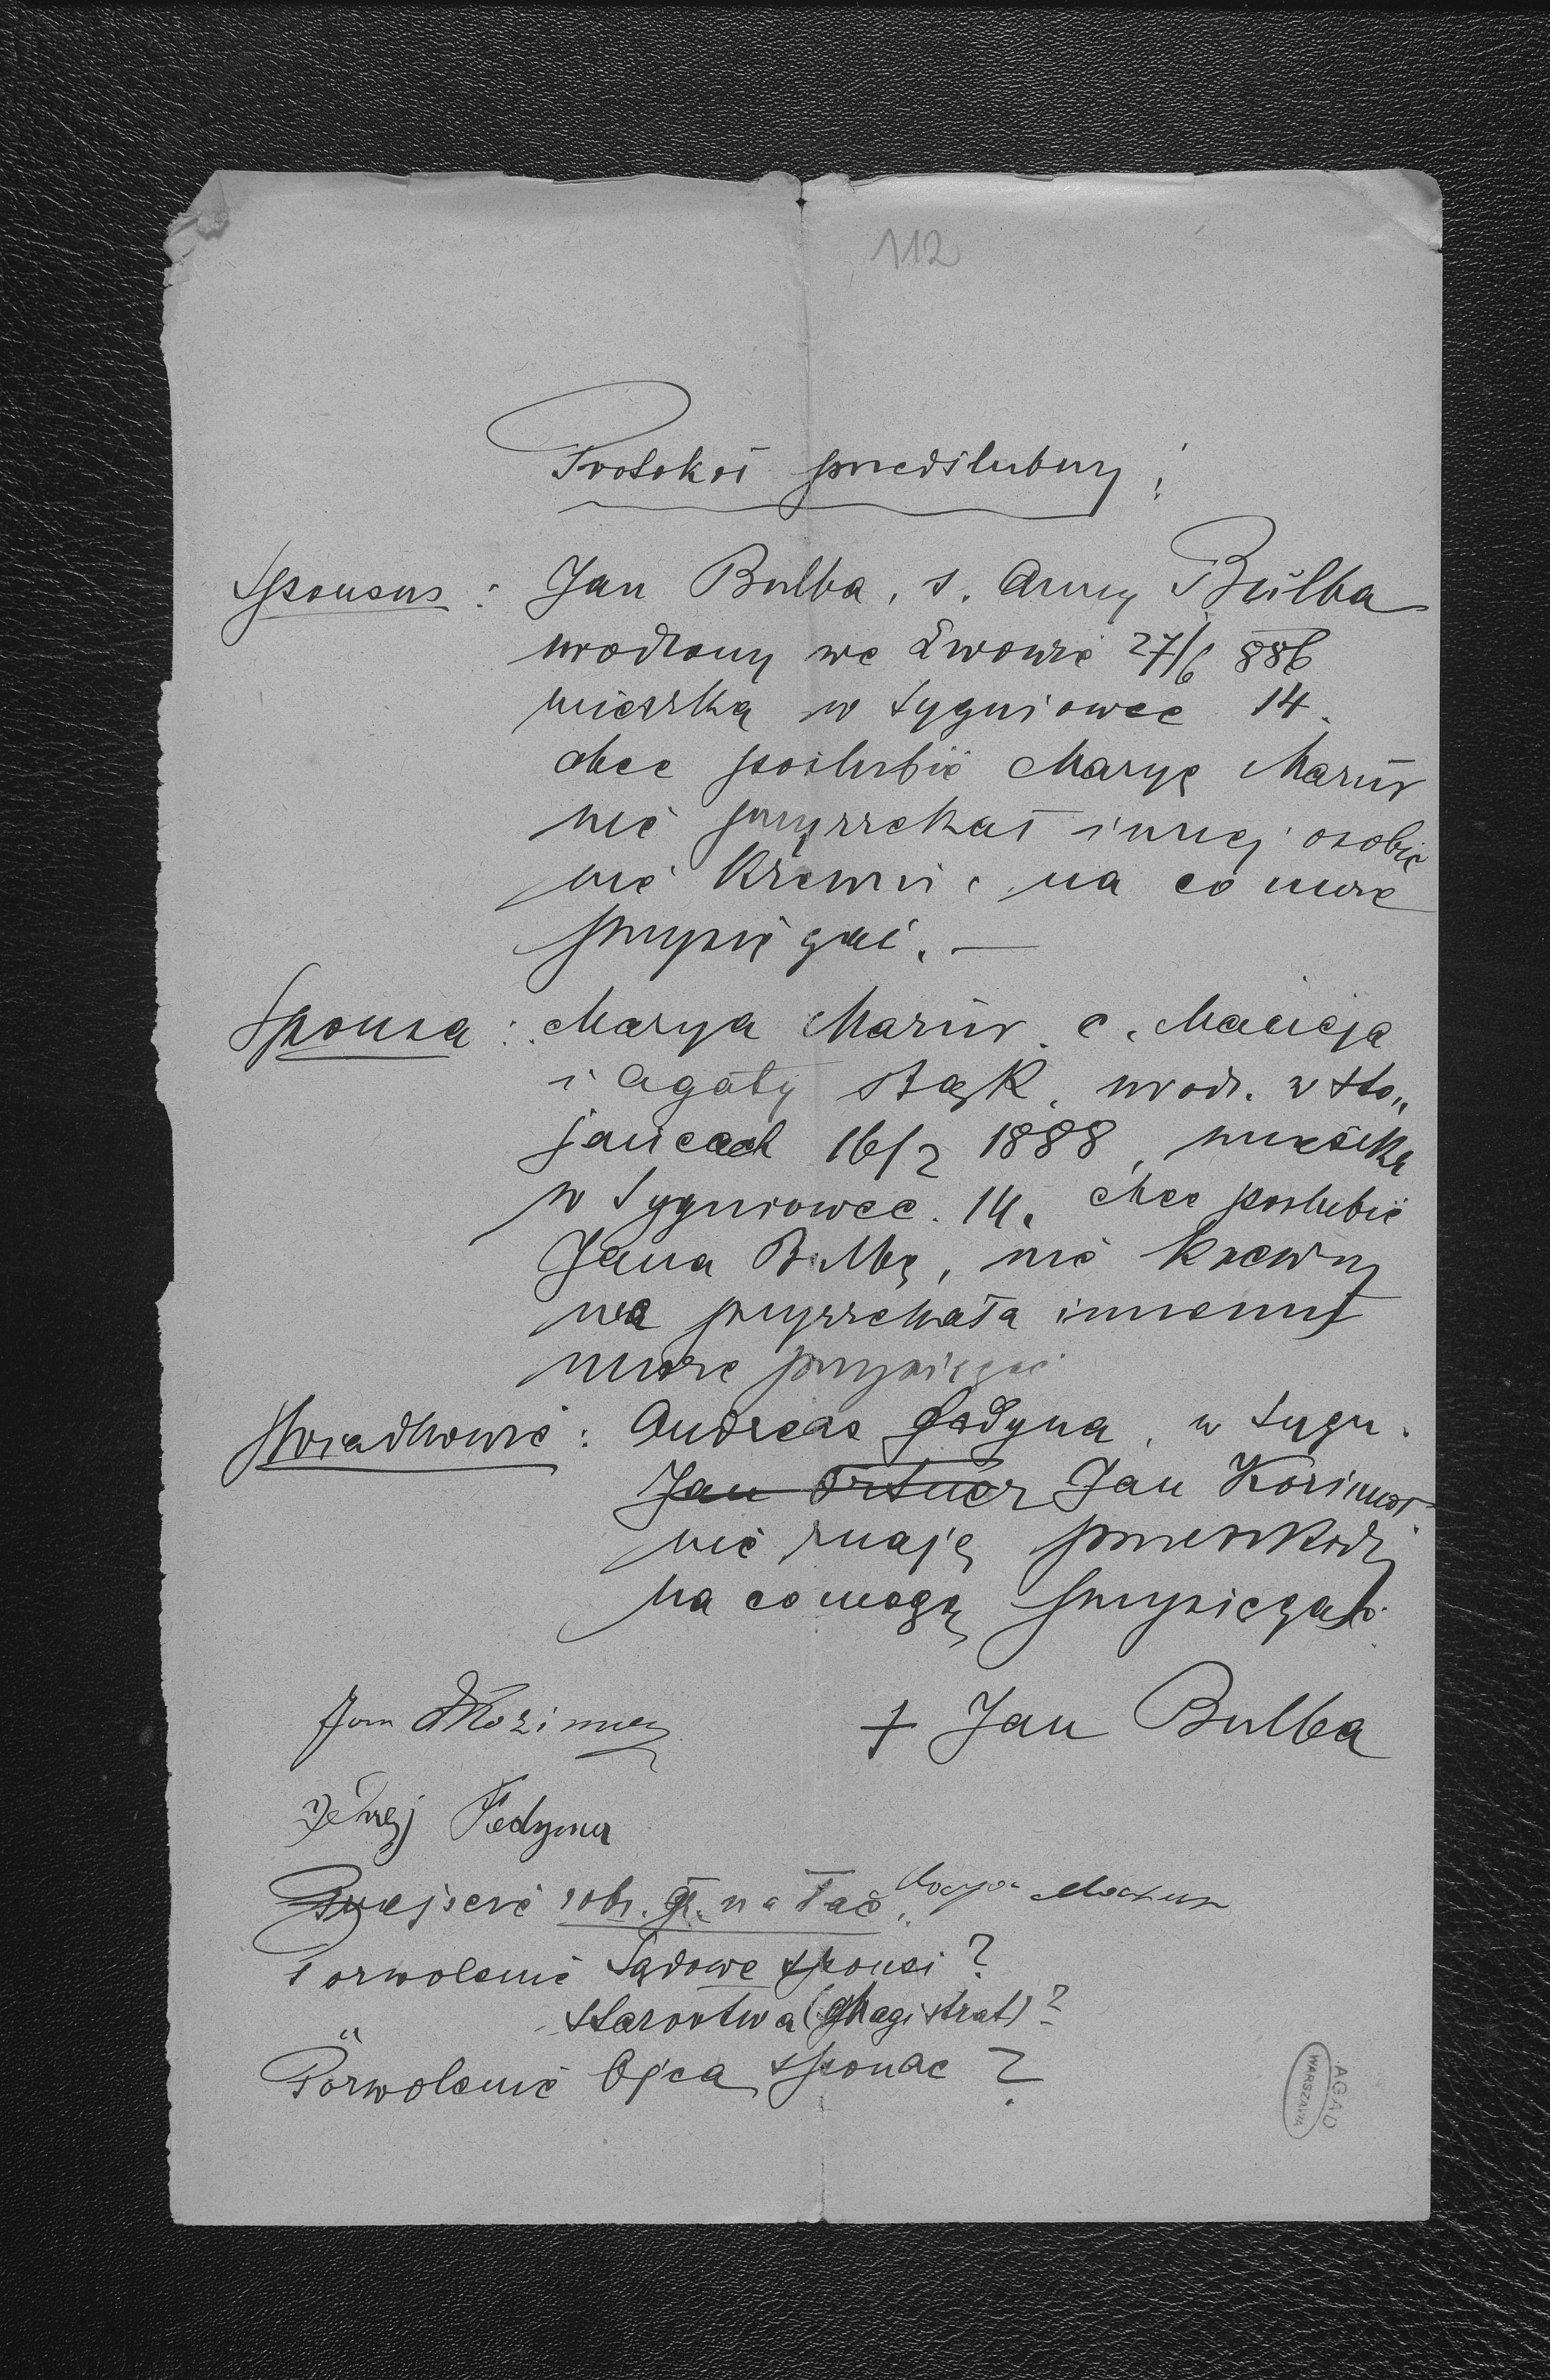 112
Protokół przedślubny:
Sponsus: Jan Bulba, s. Anny Bulba
urodzony we Lwowie 27/6 886
mieszka w Sygniowce 14.
chce poślubić Maryę Mazur
nie przyrzekał innej osobie
nie krewni, na co może
przysięgać. —
Sponsa: Marya Mazur c. Macieja
i Agaty Bąk, urodz. w Sto„
jańcach 16/2 1888, mieszka
w Sygniowce. 14. chce poślubić
Jana Bulbę, nie krewny
nie przyrzekała innemu
może przysięgać
Świadkowie: Andreas Fedyna, w Sygn.
Jan Ortner Jan Kozimor
nie znają przeszkody
na co mogą przysięgać.
Jan Kozimor
+ Jan Bulba
Fedyna
Marya Mazur
Przejście robr. gr. na łac.
Pozwolenie Sądowe sponsi?
" Starostwa (Magistrat)?
Pozwolenie Ojca sponsae?
AGAD
WARSZAWA